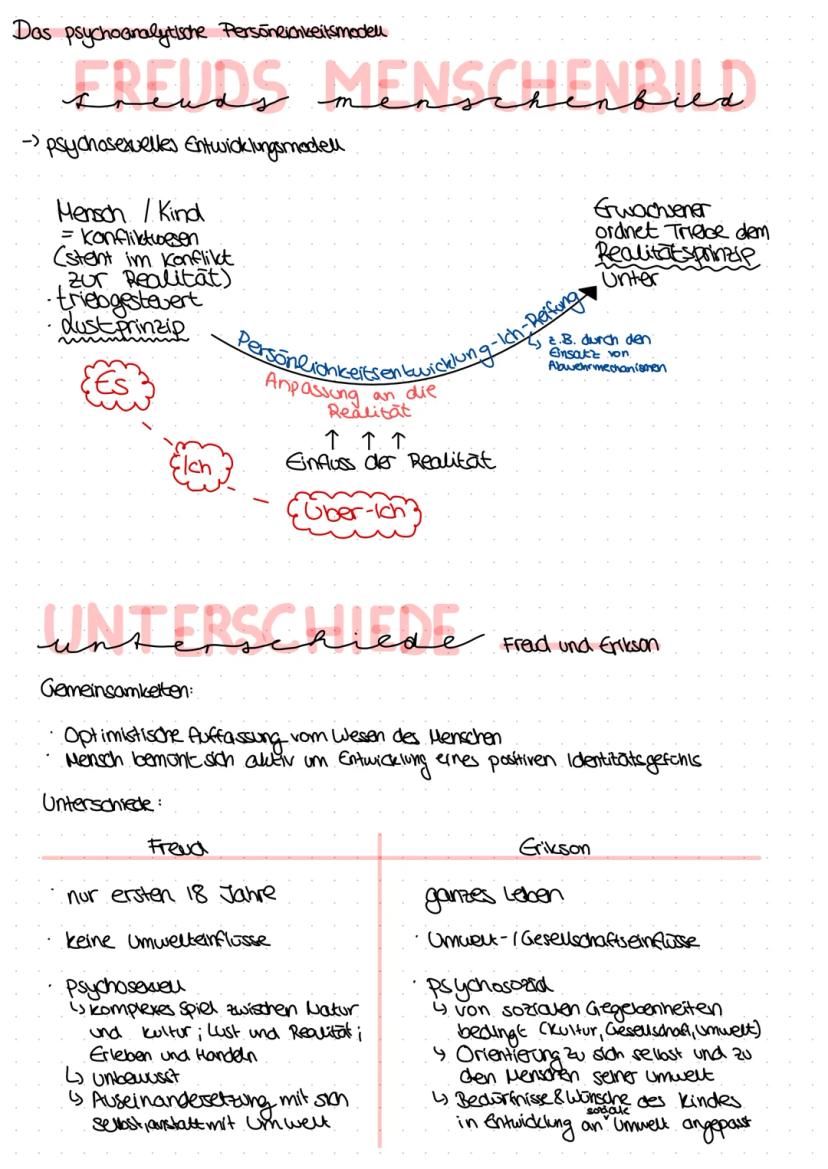 Das psychoanalytische Persönlichkeitsmodell
FREUDS MENSCHENBILD
freuds menschenbild
-> psychosexuelles Entwicklungsmodell
Mensch / Kind
= Konfliktwesen
(steht im Konflikt
zur Realität)
· triebgesteuert
· Lustprinzip
Erwachsener
ordnet Triebe dem
Realitätsprinzip
unter
Persönlichkeitsentwicklung-Ich-Reifung
↳ z.B. durch den
Einsatz von
Abwehrmechanismen
Anpassung an die
Realität
↑ ↑ ↑
Einfluss der Realität
Es
Ich
Über-Ich
UNTERSCHIEDE
unterschiede Freud und Erikson
Gemeinsamkeiten:
· Optimistische Auffassung vom Wesen des Menschen
· Mensch bemüht sich aktiv um Entwicklung eines positiven Identitätsgefühls
Unterschiede:
Freud
· nur ersten 18 Jahre
· keine Umwelteinflüsse
· psychosexuell
↳ komplexes Spiel zwischen Natur
und Kultur; Lust und Realität;
Erleben und Handeln
↳ unbewusst
↳ Auseinandersetzung mit sich
selbst, anstatt mit Umwelt
Erikson
ganzes Leben
· Umwelt-/Gesellschaftseinflüsse
· psychosozial
↳ von sozialen Gegebenheiten
bedingt (Kultur, Gesellschaft, Umwelt)
↳ Orientierung zu sich selbst und zu
den Menschen seiner Umwelt
↳ Bedürfnisse & Wünsche des Kindes
in Entwicklung an soziale Umwelt angepasst